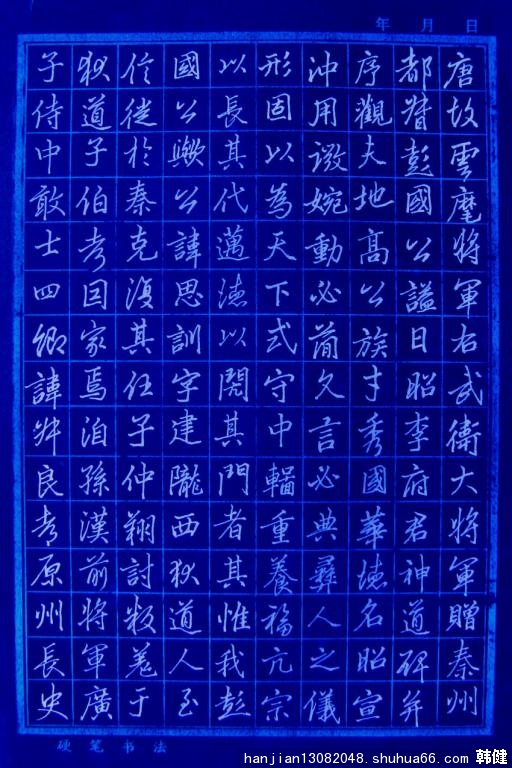 年　月　日
唐故雲麾將軍右武衛大將軍贈秦州
都督彭國公謚曰昭李府君神道碑并
序觀夫地高公族才秀國華德名昭宣
沖用微婉動必簡久言必典彝人之儀
形固以為天下式守中輜重養福亢宗
以長其代邁德以閎其門者其惟我彭
國公歟公諱思訓字建隴西狄道人至
信徙於秦克復其任子仲翔討叛羌于
狄道子伯考因家焉洎孫漢前將軍廣
子侍中敢士四卿諱良考原州長史
硬笔书法
hanjian13082048.shuhua66.com 韩健